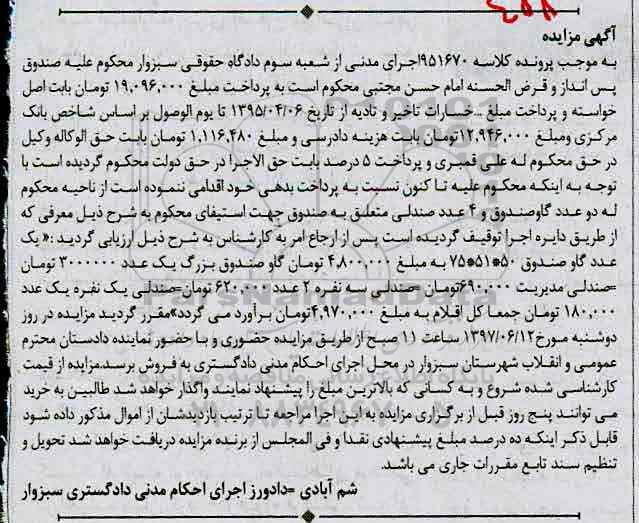 ۴۵۸۸
آگهی مزایده
به موجب پرونده کلاسه ۹۵۱۶۷۰اجرای مدنی از شعبه سوم دادگاه حقوقی سبزوار محکوم علیه صندوق
پس انداز و قرض الحسنه امام حسن مجتبی محکوم است به پرداخت مبلغ ۱۹,۰۹۶,۰۰۰ تومان بابت اصل
خواسته و پرداخت مبلغ ...خسارات تاخیر و تادیه از تاریخ ۱۳۹۵/۰۴/۰۶ تا یوم الوصول بر اساس شاخص بانک
مرکزی ومبلغ ۱۲,۹۴۶,۰۰۰تومان بابت هزینه دادرسی و مبلغ ۱,۱۱۶,۴۸۰ تومان بابت حق الوکاله وکیل
در حق محکوم له علی قمبری و پرداخت ۵ درصد بابت حق الاجرا در حق دولت محکوم گردیده است با
توجه به اینکه محکوم علیه تا کنون نسبت به پرداخت بدهی خود اقدامی ننموده است از ناحیه محکوم
له دو عدد گاوصندوق و ۴ عدد صندلی متعلق به صندوق جهت استیفای محکوم به شرح ذیل معرفی که
از طریق دایره اجرا توقیف گردیده است پس از ارجاع امر به کارشناس به شرح ذیل ارزیابی گردید :« یک
عدد گاو صندوق ۵۰*۵۱*۷۵ به مبلغ ۴,۸۰۰,۰۰۰ تومان گاو صندوق بزرگ یک عدد ۳۰۰۰۰۰۰ تومان
=صندلی مدیریت ۶۹۰,۰۰۰تومان =صندلی سه نفره ۲ عدد ۶۲۰,۰۰۰ تومان=صندلی یک نفره یک عدد
۱۸۰,۰۰۰ تومان جمعا کل اقلام به مبلغ ۴,۹۷۰,۰۰۰تومان برآورد می گردد»مقرر گردید مزایده در روز
دوشنبه مورخ۱۳۹۷/۰۶/۱۲ ساعت ۱۱ صبح از طریق مزایده حضوری و با حضور نماینده دادستان محترم
عمومی و انقلاب شهرستان سبزوار در محل اجرای احکام مدنی دادگستری به فروش برسد.مزایده از قیمت
کارشناسی شده شروع و به کسانی که بالاترین مبلغ را پیشنهاد نمایند واگذار خواهد شد طالبین به خرید
می توانند پنج روز قبل از برگزاری مزایده به این اجرا مراجعه تا ترتیب بازدیدشان از اموال مذکور داده شود
قابل ذکر اینکه ده درصد مبلغ پیشنهادی نقدا و فی المجلس از برنده مزایده دریافت خواهد شد تحویل و
تنظیم سند تابع مقررات جاری می باشد.
شم آبادی =دادورز اجرای احکام مدنی دادگستری سبزوار
ParsNamadData